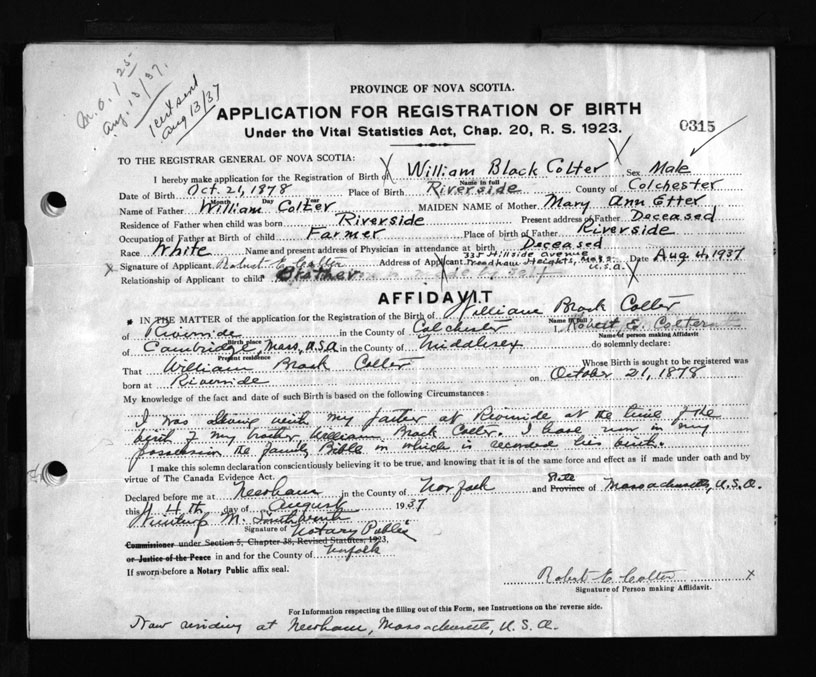 M.O. 1 25
Aug. 13/37.
1 cent sent
Aug 13/37
PROVINCE OF NOVA SCOTIA.
APPLICATION FOR REGISTRATION OF BIRTH
Under the Vital Statistics Act, Chap. 20, R. S. 1923.
0315
TO THE REGISTRAR GENERAL OF NOVA SCOTIA:
I hereby make application for the Registration of Birth of William Black Colter Sex Male
Name in full
Date of Birth Oct. 21, 1878 Place of Birth Riverside County of Colchester
Month Day Year
Name of Father William Colter MAIDEN NAME of Mother Mary Ann Etter
Residence of Father when child was born Riverside Present address of Father Deceased
Occupation of Father at Birth of child Farmer Place of birth of Father Riverside
Race White Name and present address of Physician in attendance at birth Deceased
Signature of Applicant Robert E. Colter Address of Applicant 335 Hillside Avenue Heights, Mass. U.S.A. Date Aug 4, 1937
Relationship of Applicant to child Brother
AFFIDAVIT
IN THE MATTER of the application for the Registration of Birth of William Brock Colter
Name in full
of Riverside in the County of Colchester I, Robert E. Colter
Birth place Name of Person making Affidavit
of Cambridge, Mass, U.S.A in the County of Middlesex do solemnly declare:
Present residence
That William Brock Colter Whose Birth is sought to be registered was
born at Riverside on October 21, 1878
My knowledge of the fact and date of such Birth is based on the following Circumstances:
I was living with my father at Riverside at the time of the
birth of my brother, William Brock Colter. I have now in my
possession the family Bible in which is recorded his birth.
I make this solemn declaration conscientiously believing it to be true, and knowing that it is of the same force and effect as if made under oath and by
virtue of The Canada Evidence Act.
Declared before me at Needham in the County of Norfolk and Province State of Massachusetts, U.S.A.
this 4th day of August 1937
Winthrop M. Southworth
Signature of Notary Public
Commissioner under Section 5, Chapter 38, Revised Statutes, 1923,
or Justice of the Peace in and for the County of Norfolk
If sworn before a Notary Public affix seal.
Robert E. Colter
Signature of Person making Affidavit.
For Information respecting the filling out of this Form, see Instructions on the reverse side.
Now residing at Needham, Massachusetts, U.S.A.